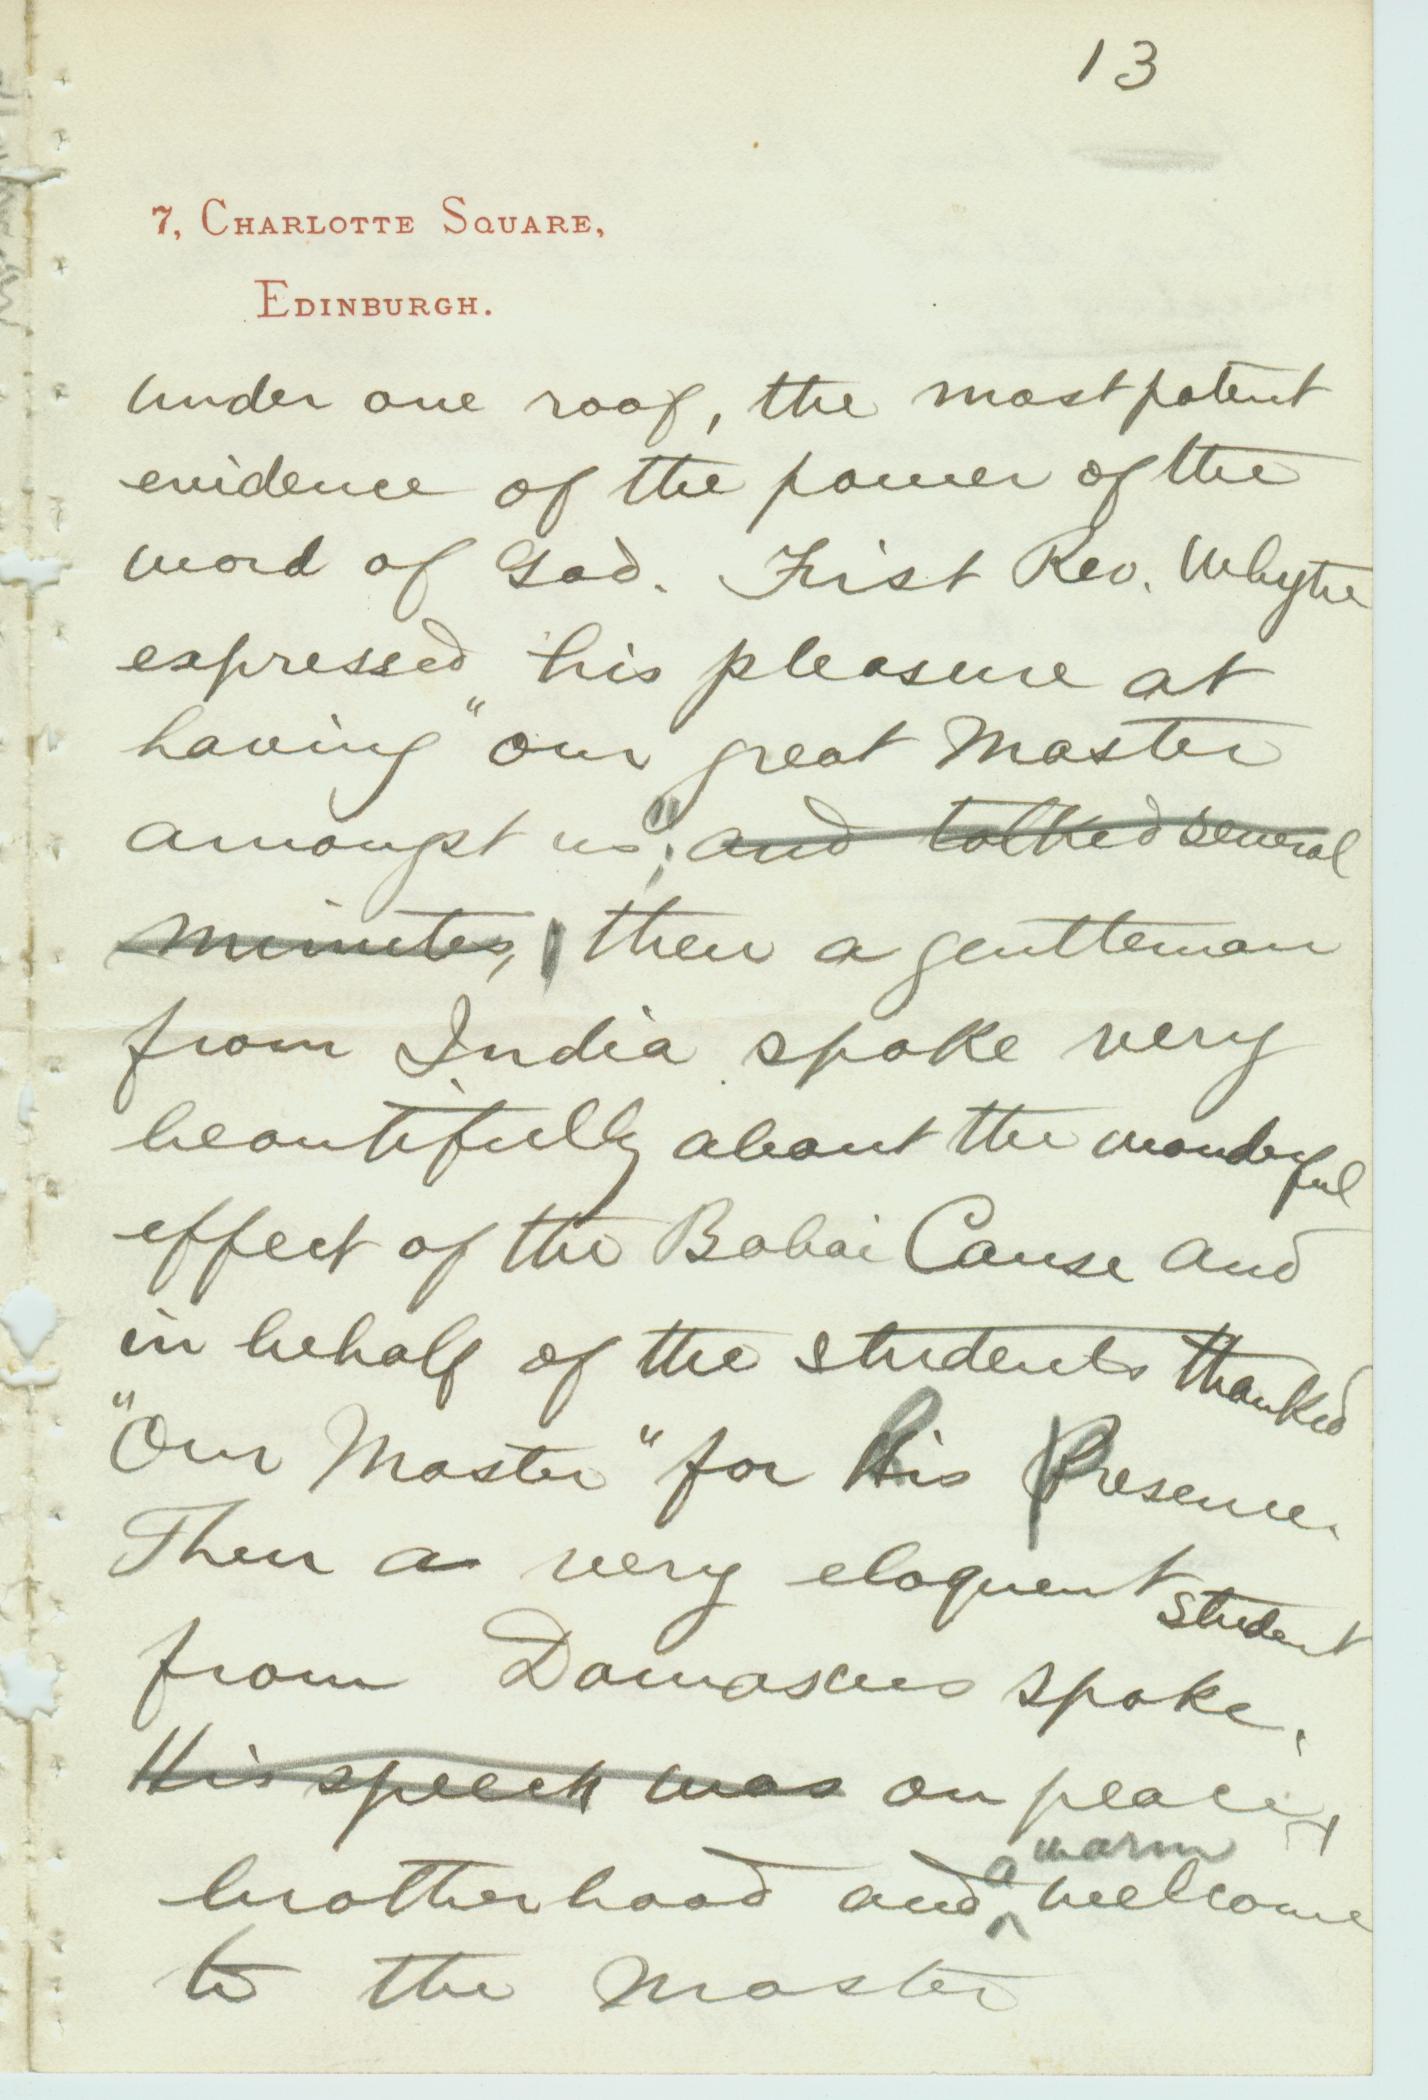 13
7, Charlotte Square,
Edinburgh.
under one roof, the most potent
evidence of the power of the
word of God. First Rev. Whyte
expressed his pleasure at
having "our great Master
amongst us"; and talked several
minutes, then a gentleman
from India spoke very
beautifully about the wonderful
effect of the Bahai Cause and
in behalf of the students thanked
"Our Master" for His Presence.
Then a very eloquent student
from Damascus spoke.
His speech was on peace,
brotherhood and a warm welcome
to the Master